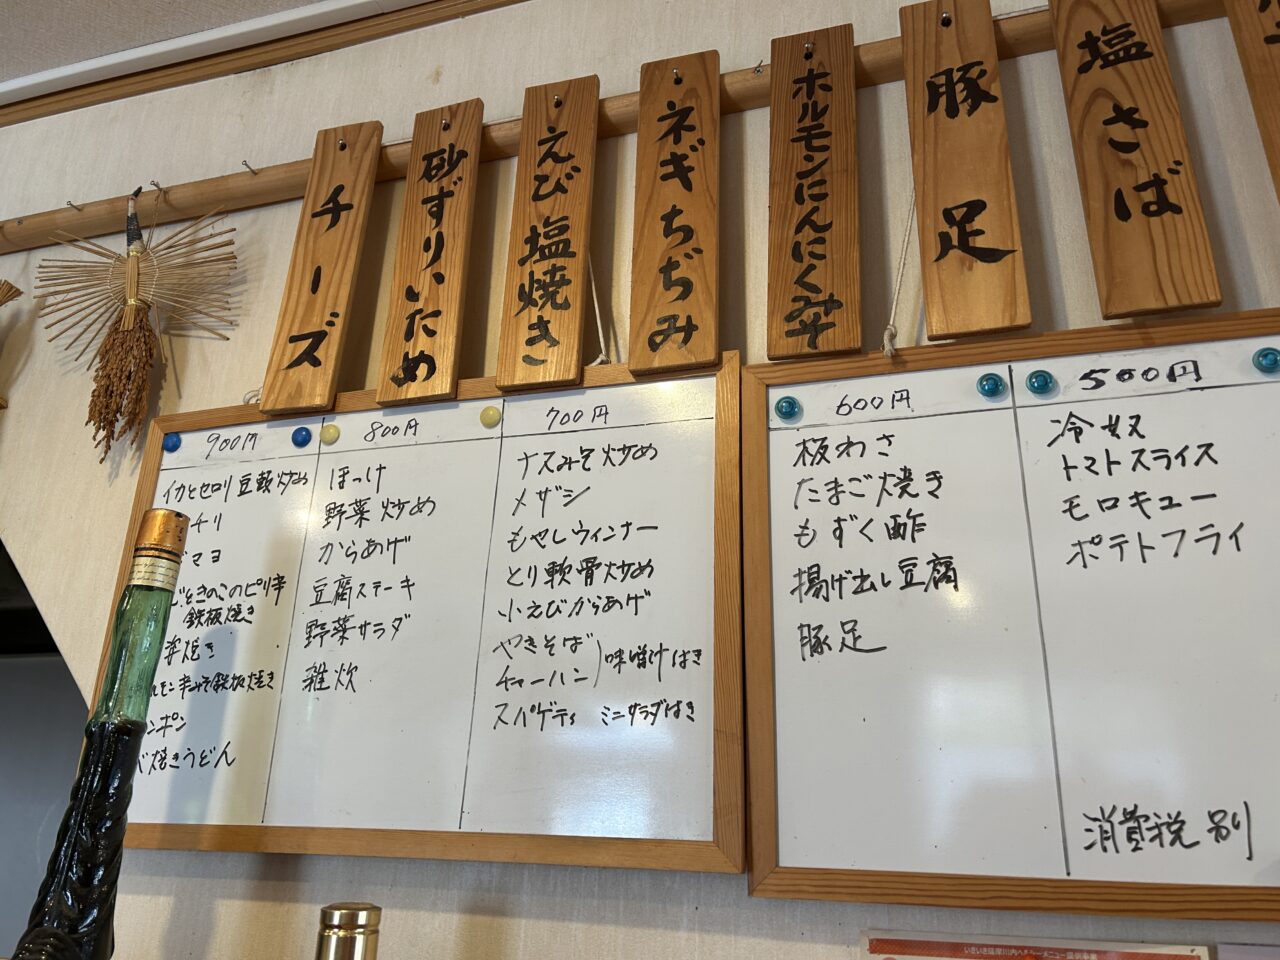 チーズ
砂ずりいため
えび塩焼き
ネギちぢみ
ホルモンにんにく炒
豚足
塩さば
900円
イカとセロリ豆鼓炒め
チリ
マヨ
ときのこのピリ辛
鉄板焼き
姿焼き
ルモン辛みそ鉄板焼き
ンポン
焼きうどん
800円
ほっけ
野菜炒め
からあげ
豆腐ステーキ
野菜サラダ
雑炊
700円
ナスみそ炒め
メザシ
もやしウィンナー
とり軟骨炒め
小えびからあげ
やきそば
チャーハン
味噌汁はき
スパゲティ ミニサラダはき
600円
板わさ
たまご焼き
もずく酢
揚げ出し豆腐
豚足
500円
冷奴
トマトスライス
モロキュー
ポテトフライ
消費税別